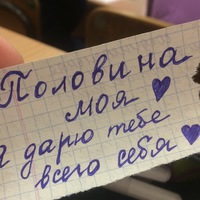 Половина
моя
Я дарю тебе
всего себя